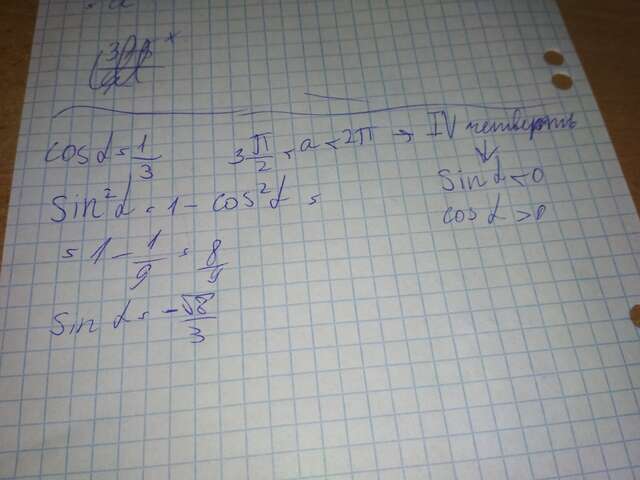 cos α = 1/3   3π/2 < a < 2π → IV четверть
sin α < 0
cos α > 0
sin²α = 1 - cos²α =
= 1 - 1/9 = 8/9
sin α = -√8/3